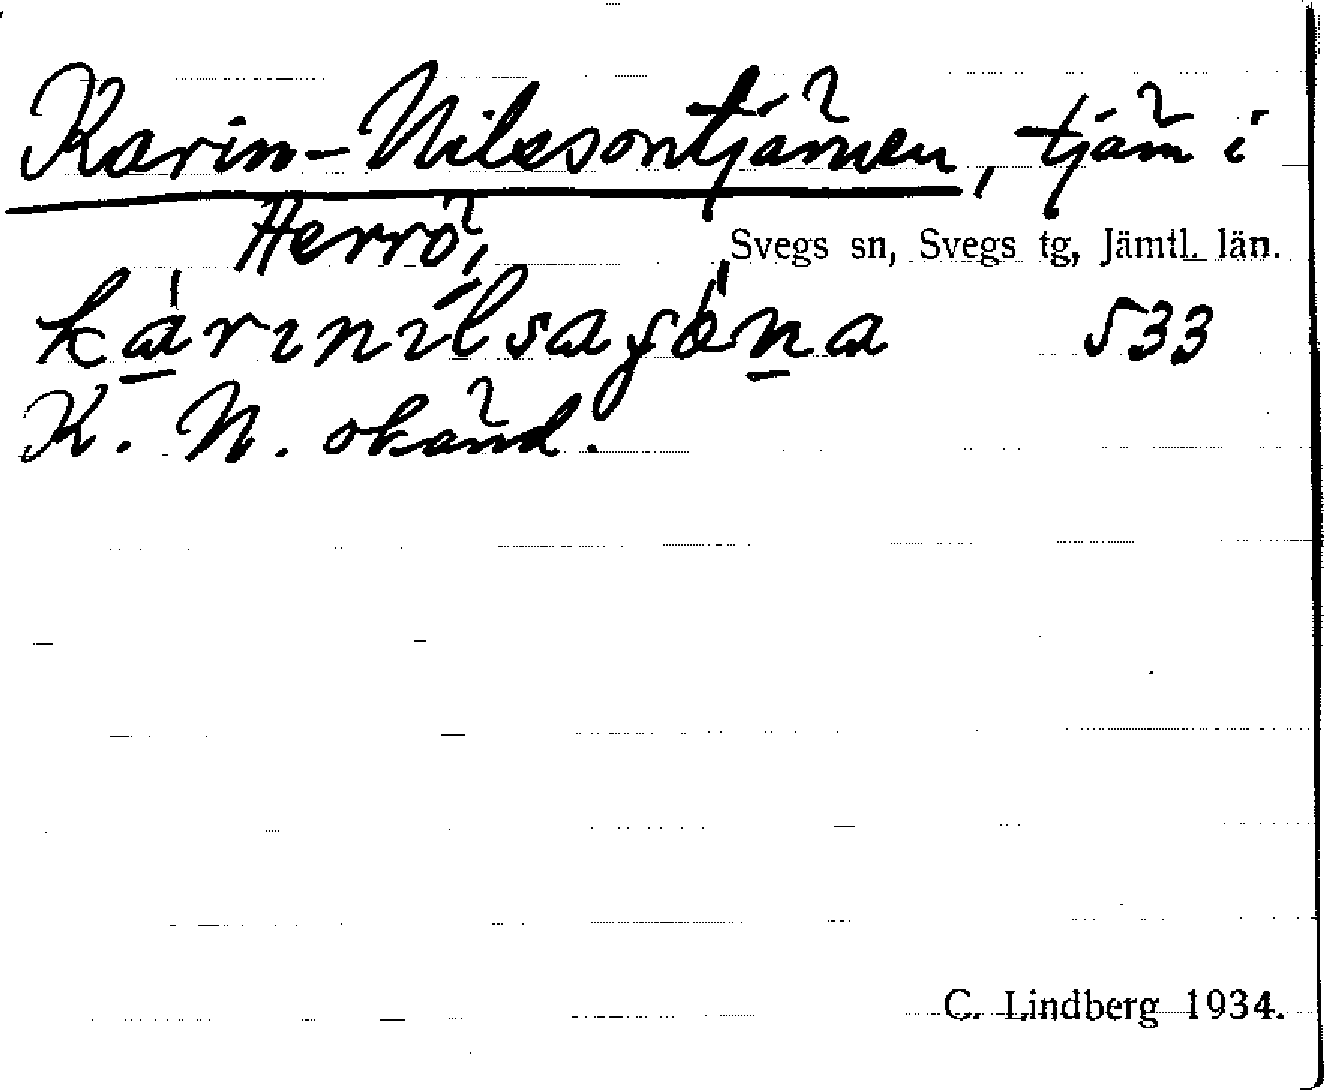 Karin-Nilssontjärnen, tjärn i
Herrö,
Svegs sn, Svegs tg, Jämtl. län.
533
K. N. okänd.
C. Lindberg 1934.